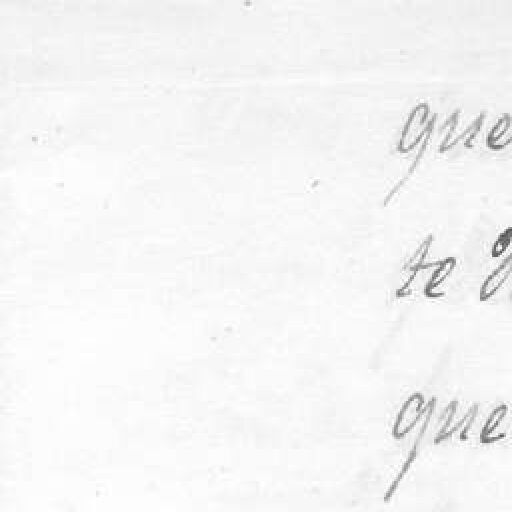 que
te
que